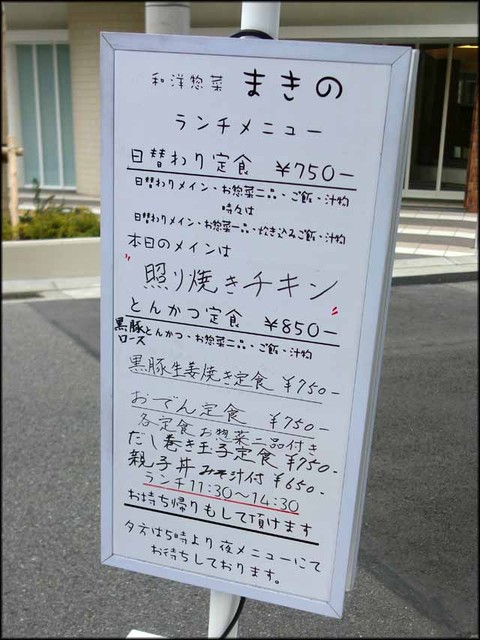 和洋惣菜 まきの
ランチメニュー
日替わり定食 ¥750-
日替わりメイン・お惣菜二品・ご飯・汁物
時々は
日替わりメイン・お惣菜一品・炊き込みご飯・汁物
本日のメインは
"照り焼きチキン"
とんかつ定食 ¥850-
黒豚ロースとんかつ・お惣菜二品・ご飯・汁物
黒豚生姜焼き定食 ¥750-
おでん定食 ¥750-
各定食お惣菜二品付き
だし巻き玉子定食 ¥750-
親子丼 みそ汁付 ¥650-
ランチ11:30~14:30
お持ち帰りもして頂けます
夕方は5時より夜メニューにて
お待ちしております。